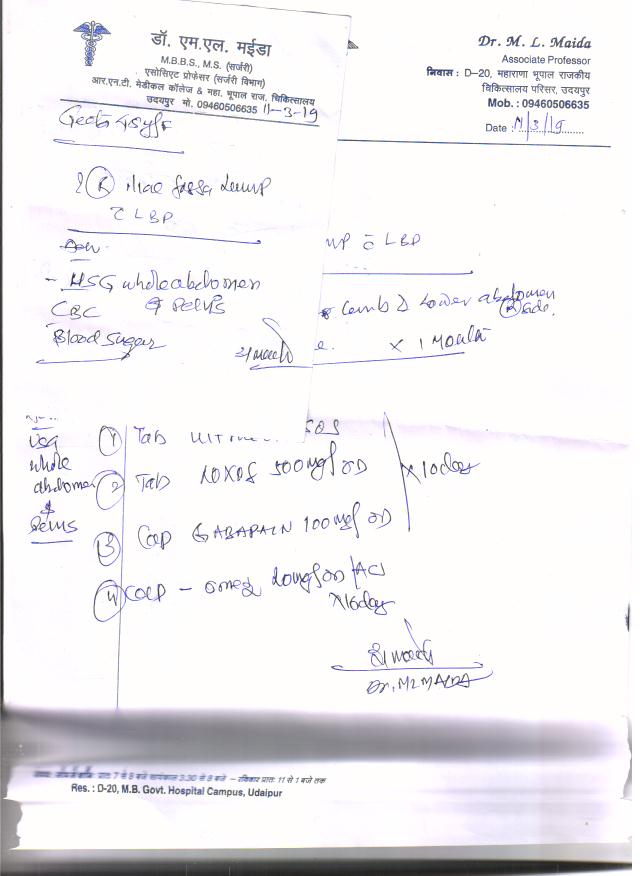 डॉ. एम.एल. मईडा
M.B.B.S., M.S. (सर्जरी)
एसोसिएट प्रोफेसर (सर्जरी विभाग)
आर.एन.टी. मेडीकल कॉलेज & महा. भूपाल राज. चिकित्सालय
उदयपुर मो. 09460506635 11-3-19
Geeta 45y/F
? (R) iliac fossa Lump
c̄ LBP
Adv.
- USG whole abdomen
& Pelvis
CBC
Blood Sugar
Dr. M. L. Maida
Associate Professor
निवास : D-20, महाराणा भूपाल राजकीय
चिकित्सालय परिसर, उदयपुर
Mob. : 09460506635
Date : 11/3/19
c̄ LBP
Lower abdomen
(R) side.
x 1 Month
USG
whole
abdomen
&
Pelvis
1 Tab SOS
2 Tab 500mg/OD
x 10day
3 Cap GABAPAIN 100mg/OD
4 Cap - omez 20mg/OD/AC
x 10day
Dr. ML MAIDA
प्रातः 7 से 8 बजे सायंकाल 3.30 से 8 बजे – रविवार प्रातः 11 से 1 बजे तक
Res. : D-20, M.B. Govt. Hospital Campus, Udaipur